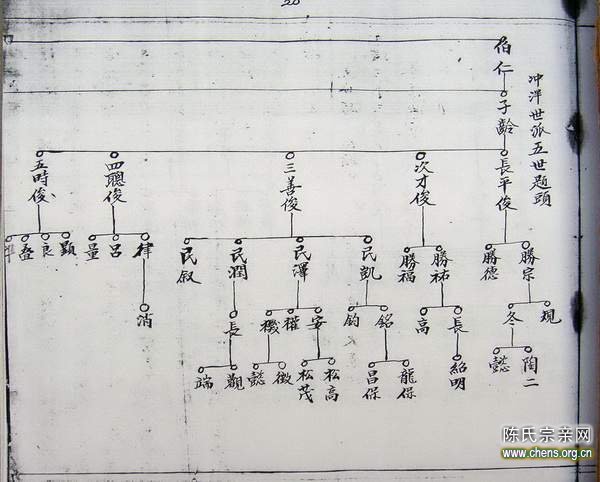 冲泮世派五世题頭
伯仁
子齡
長平俊
次才俊
三善俊
四聰俊
五時俊
勝宗
勝德
勝祐
勝福
民凱
民澤
民潤
民叙
律
呂
量
顯
良
規
冬
長
高
銘
鈞
安
權
機
長
消
陶二
懿
紹明
龍保
昌保
松高
松茂
徵
懿
觀
端
陈氏宗亲网
www.chens.org.cn